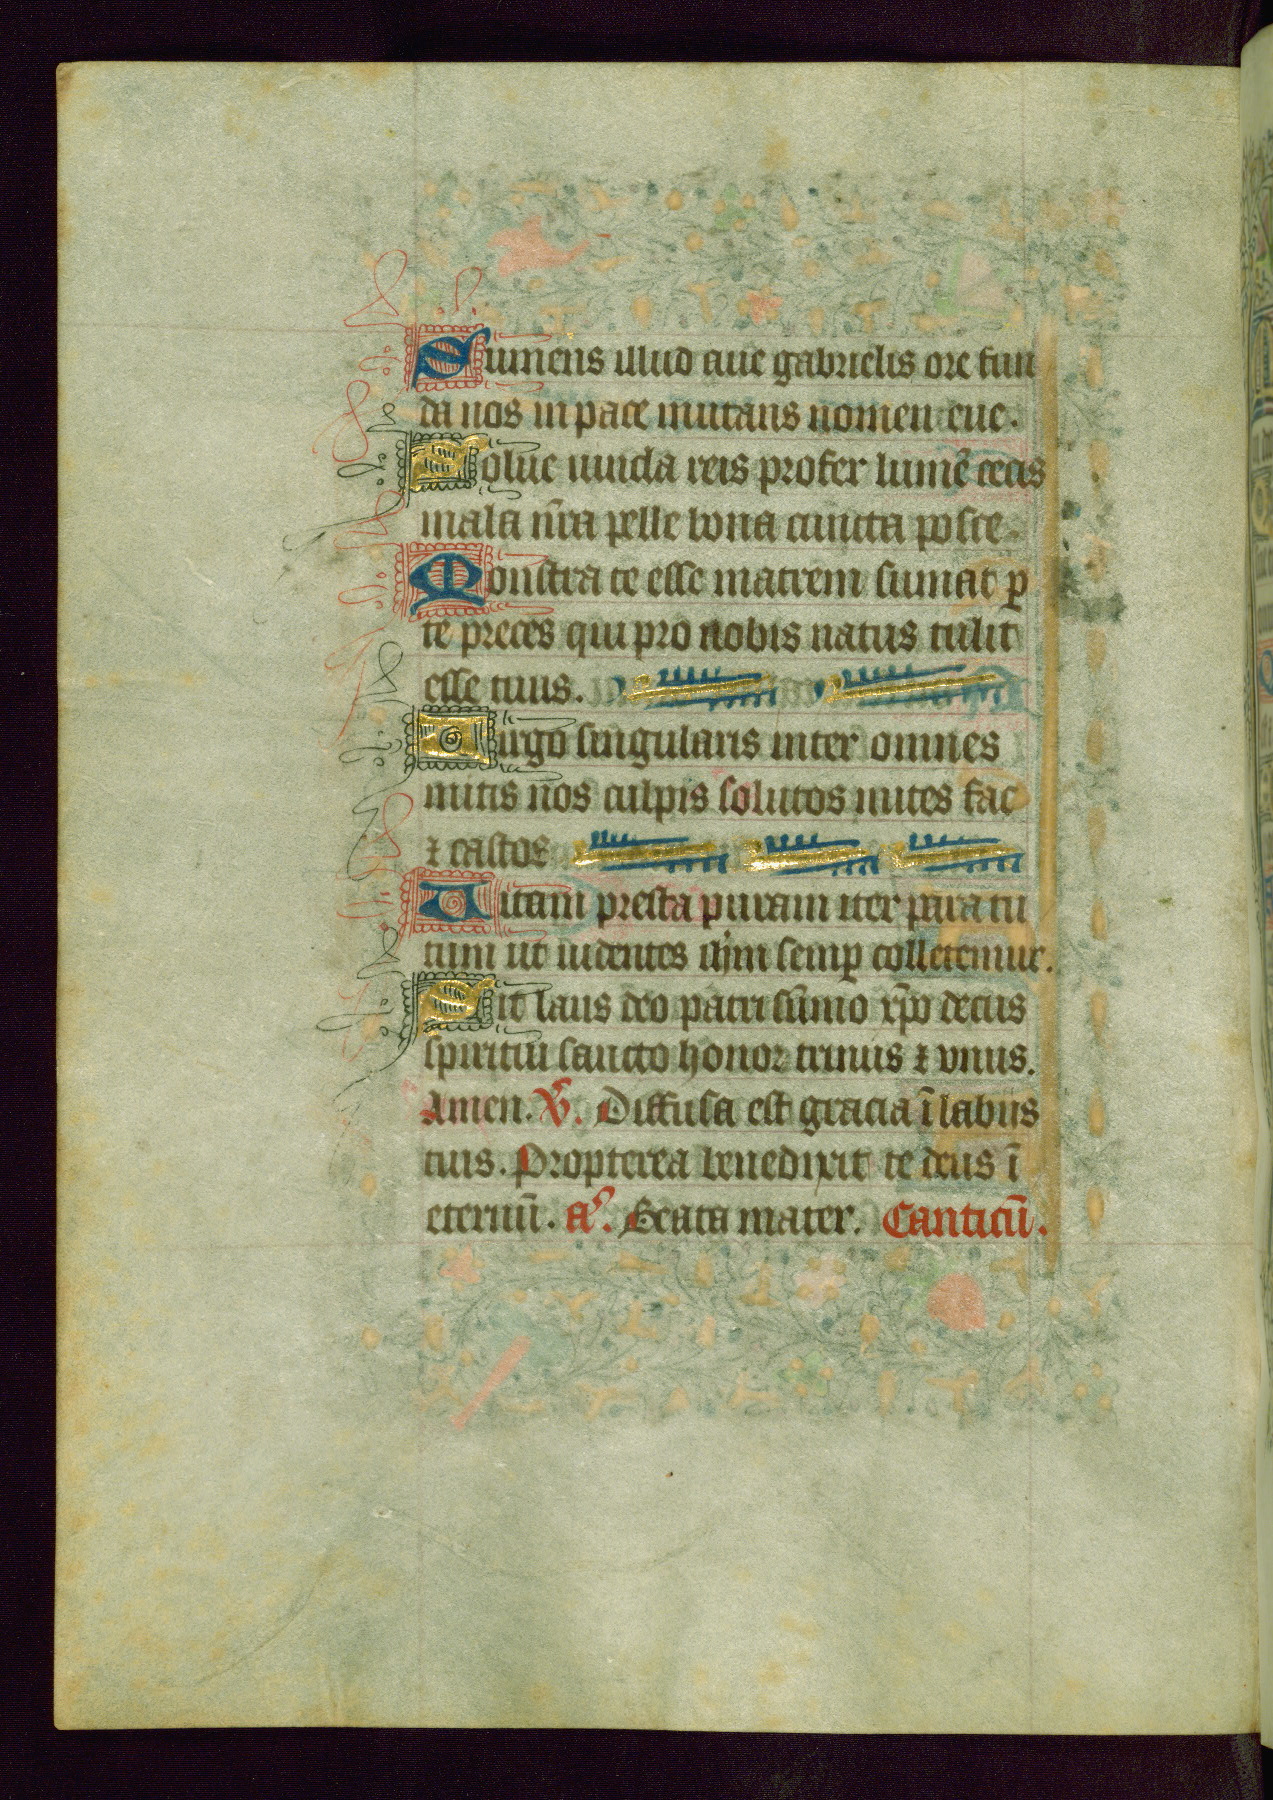 Sumens illud aue gabrielis ore fun
da nos in pace mutans nomen eue.
Solue uincla reis profer lumē cecis
mala nr̄a pelle bona cuncta posce.
Monstra te esse matrem sumat ꝑ
te preces qui pro nobis natus tulit
esse tuus.
Uirgo singularis inter omnes
mitis nos culpis solutos mites fac
⁊ castos
Uitam presta puram iter para tu
tum ut uidentes ih̄m semꝑ colletemur.
Sit laus deo patri sūmo xp̄o decus
spiritui sancto honor trinus ⁊ vnus.
Amen. V̕. Diffusa est gracia ī labiis
tuis. Propterea benedixit te deus ī
eternū. a̕. Beata mater. Canticū.